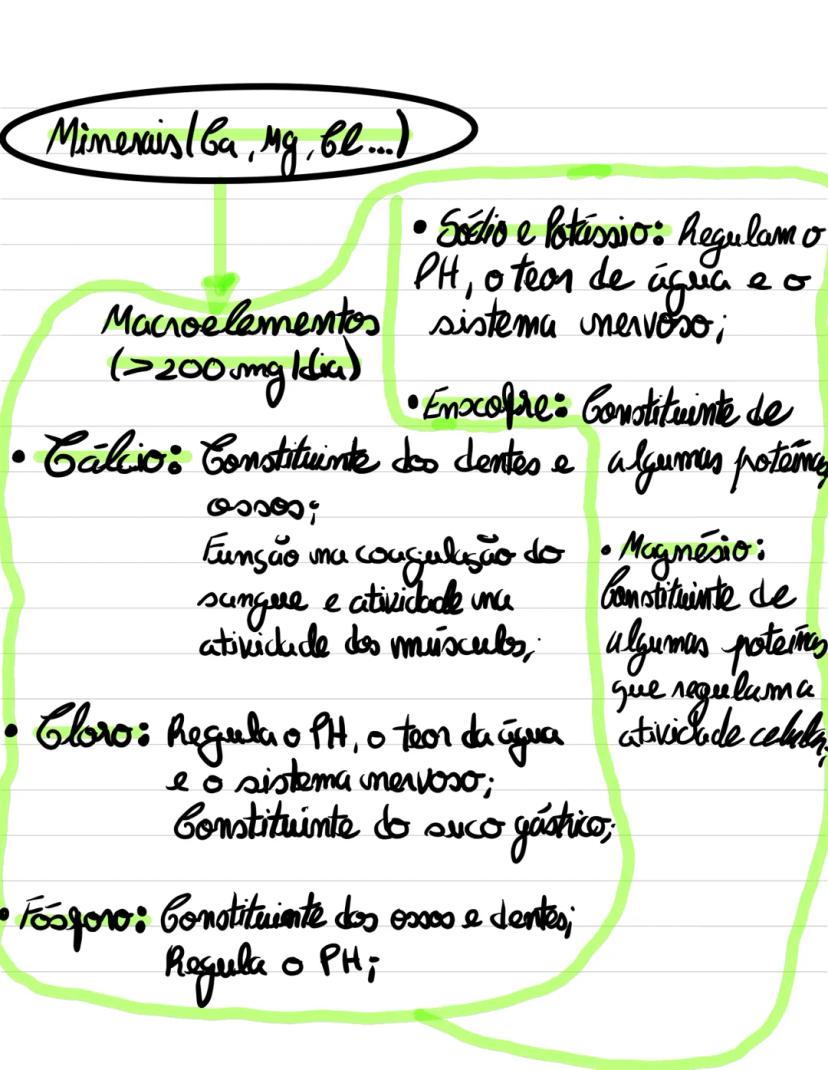 Minerais (Ca, Mg, Cl...)
Macroelementos
(>200 mg/dia)
• Cálcio: Constituinte dos dentes e
ossos;
Função na coagulação do
sangue e atividade na
atividade dos músculos;
• Cloro: Regula o PH, o teor da água
e o sistema nervoso;
Constituinte do suco gástrico;
• Fósforo: Constituinte dos ossos e dentes;
Regula o PH;
• Sódio e Potássio: Regulam o
PH, o teor de água e o
sistema nervoso;
• Enxofre: Constituinte de
algumas poteínas
• Magnésio:
Constituinte de
algumas poteínas
que regulam a
atividade celula